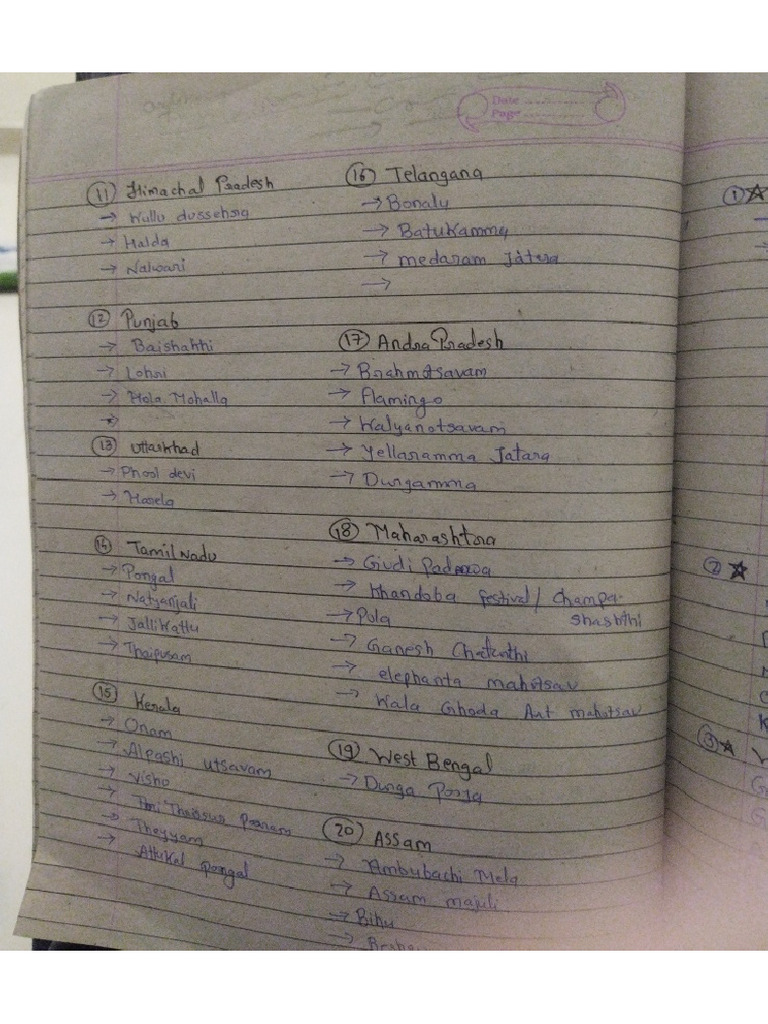 Date
Page
11 Himachal Pradesh
→ Kullu dussehra
→ Halda
→ Nalwari
12 Punjab
→ Baishakhi
→ Lohri
→ Hola Mohalla
→
13 Uttarkhad
→ Phool devi
→ Harela
14 Tamil Nadu
→ Pongal
→ Natyanjali
→ Jallikattu
→ Thaipusam
15 Kerala
→ Onam
→ Alpashi utsavam
→ Vishu
→ Thrissur Pooram
→ Theyyam
→ Attukal pongal
16 Telangana
→ Bonalu
→ Batukamma
→ medaram jatra
→
17 Andra Pradesh
→ Brahmotsavam
→ flamingo
→ Kalyanotsavam
→ Yellaramma Jatara
→ Durgamma
18 Maharashtra
→ Gudi Padwa
→ Khandoba festival / Champa-
shashthi
→ Pola
→ Ganesh Chaturthi
→ elephanta mahotsav
→ Kala Ghoda Art mahotsav
19 West Bengal
→ Durga Pooja
20 Assam
→ Ambubachi Mela
→ Assam majuli
→ Bihu
1
2
3